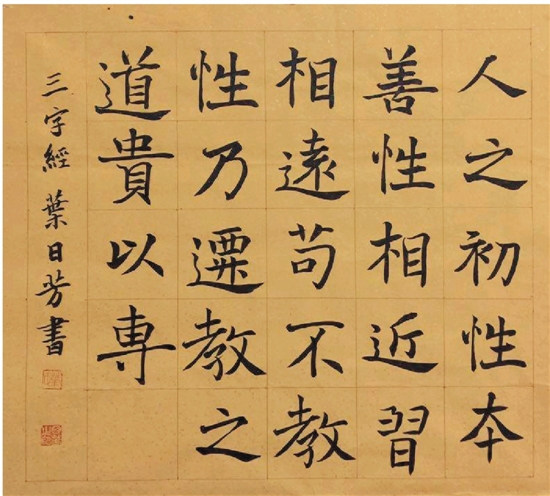 人之初性本
善性相近習
相遠苟不教
性乃遷教之
道貴以専
三字經葉日芳書